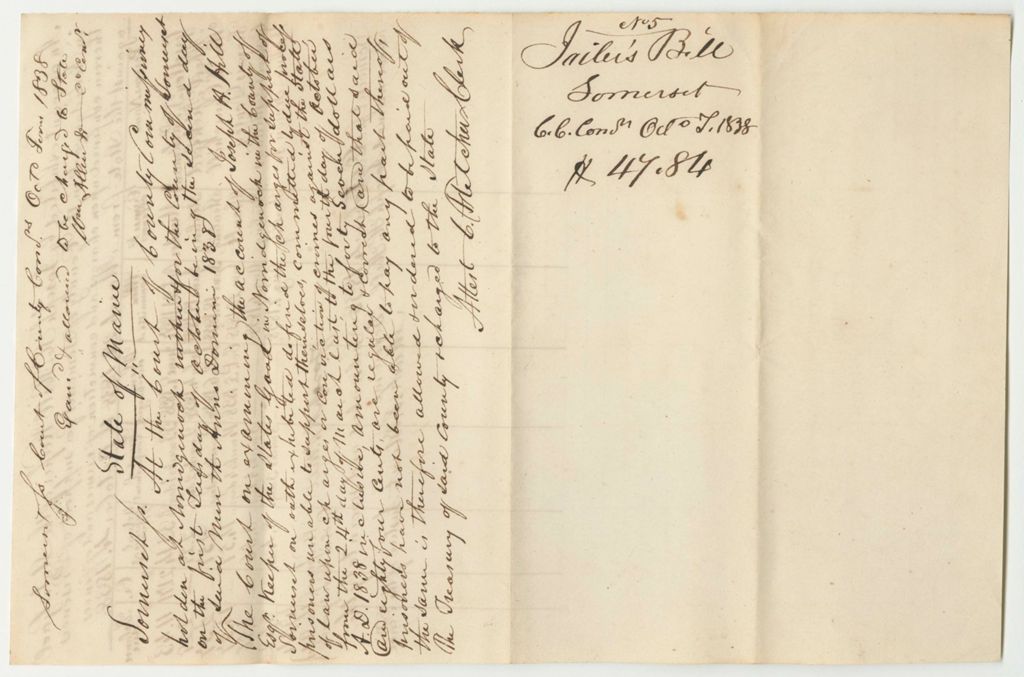 Somerset Ss. Court of County Comrs Octo Term 1838
Exam'd & allowed to be charged to State
State of Maine
Somerset Ss. At the Court of County Commissioners
holden at Norridgewock within & for the County of Somerset
on the first Tuesday of October being the second day
of said Month Anno Domini 1838
The Court on examining the account of Joseph H. Hill
Esqr. Keeper of the States Gaol in Norridgewock in the County of
Somerset on oath exhibited do find the charges for support of
prisoners unable to support themselves, committed by due process
of law upon charges or conviction of crimes against the State
from the 24th day of March last to the fourth day of October
A.D. 1838 inclusive, amounting to forty Seven dollars
and eighty four Cents, are regular & correct and that said
prisoners have not been able to pay any part thereof
the same is therefore allowed & ordered to be paid out of
the Treasury of said County & charged to the State
Attest C. Fletcher Clerk
No 5
Jailer's Bill
Somerset
C.C. Comrs Octo T. 1838
$ 47.84